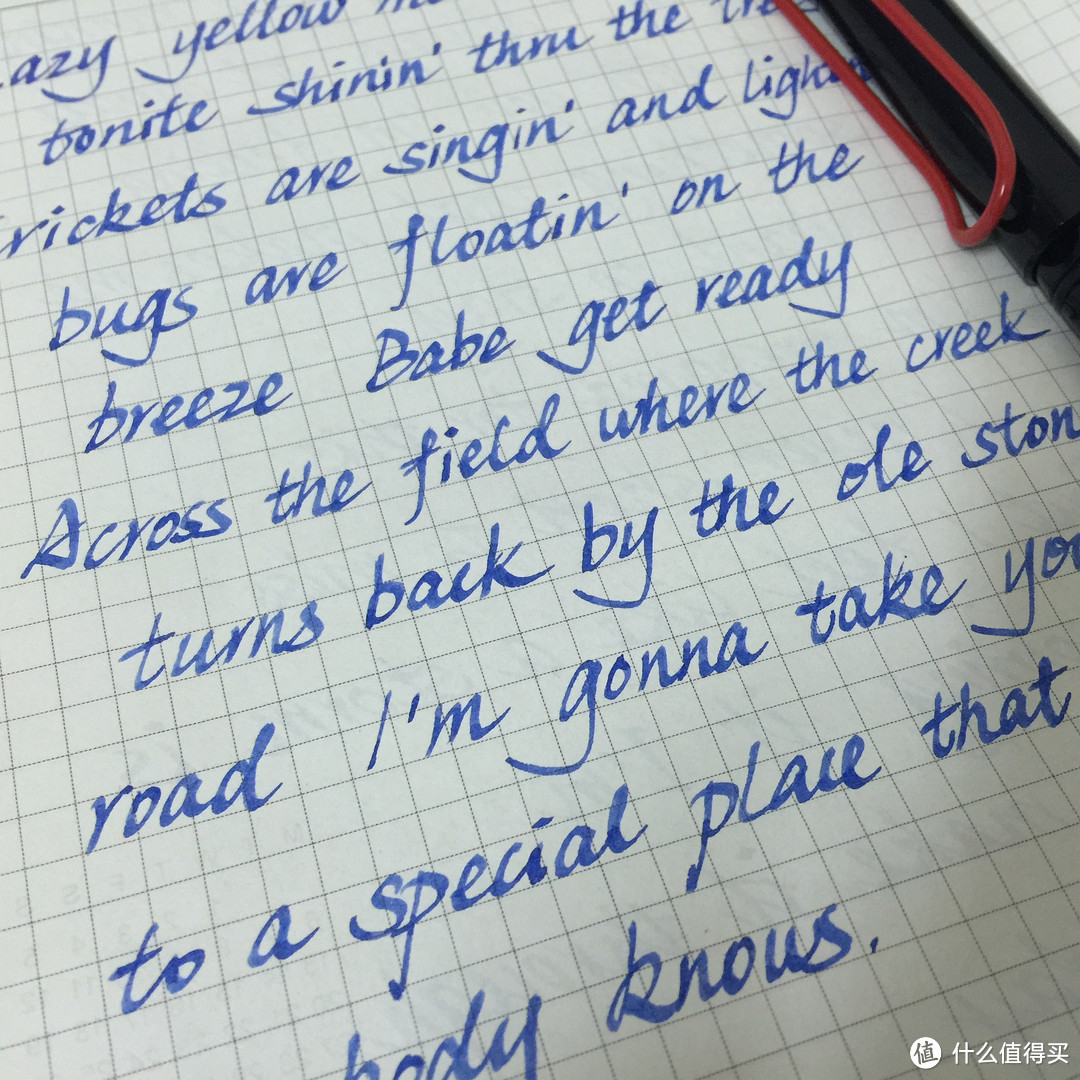 azy yellow
tonite shinin' thru the trees
crickets are singin' and
bugs are floatin' on the
breeze Babe get ready
Across the field where the creek
turns back by the ole ston
road I'm gonna take you
to a special place that
body knows.
值 什么值得买